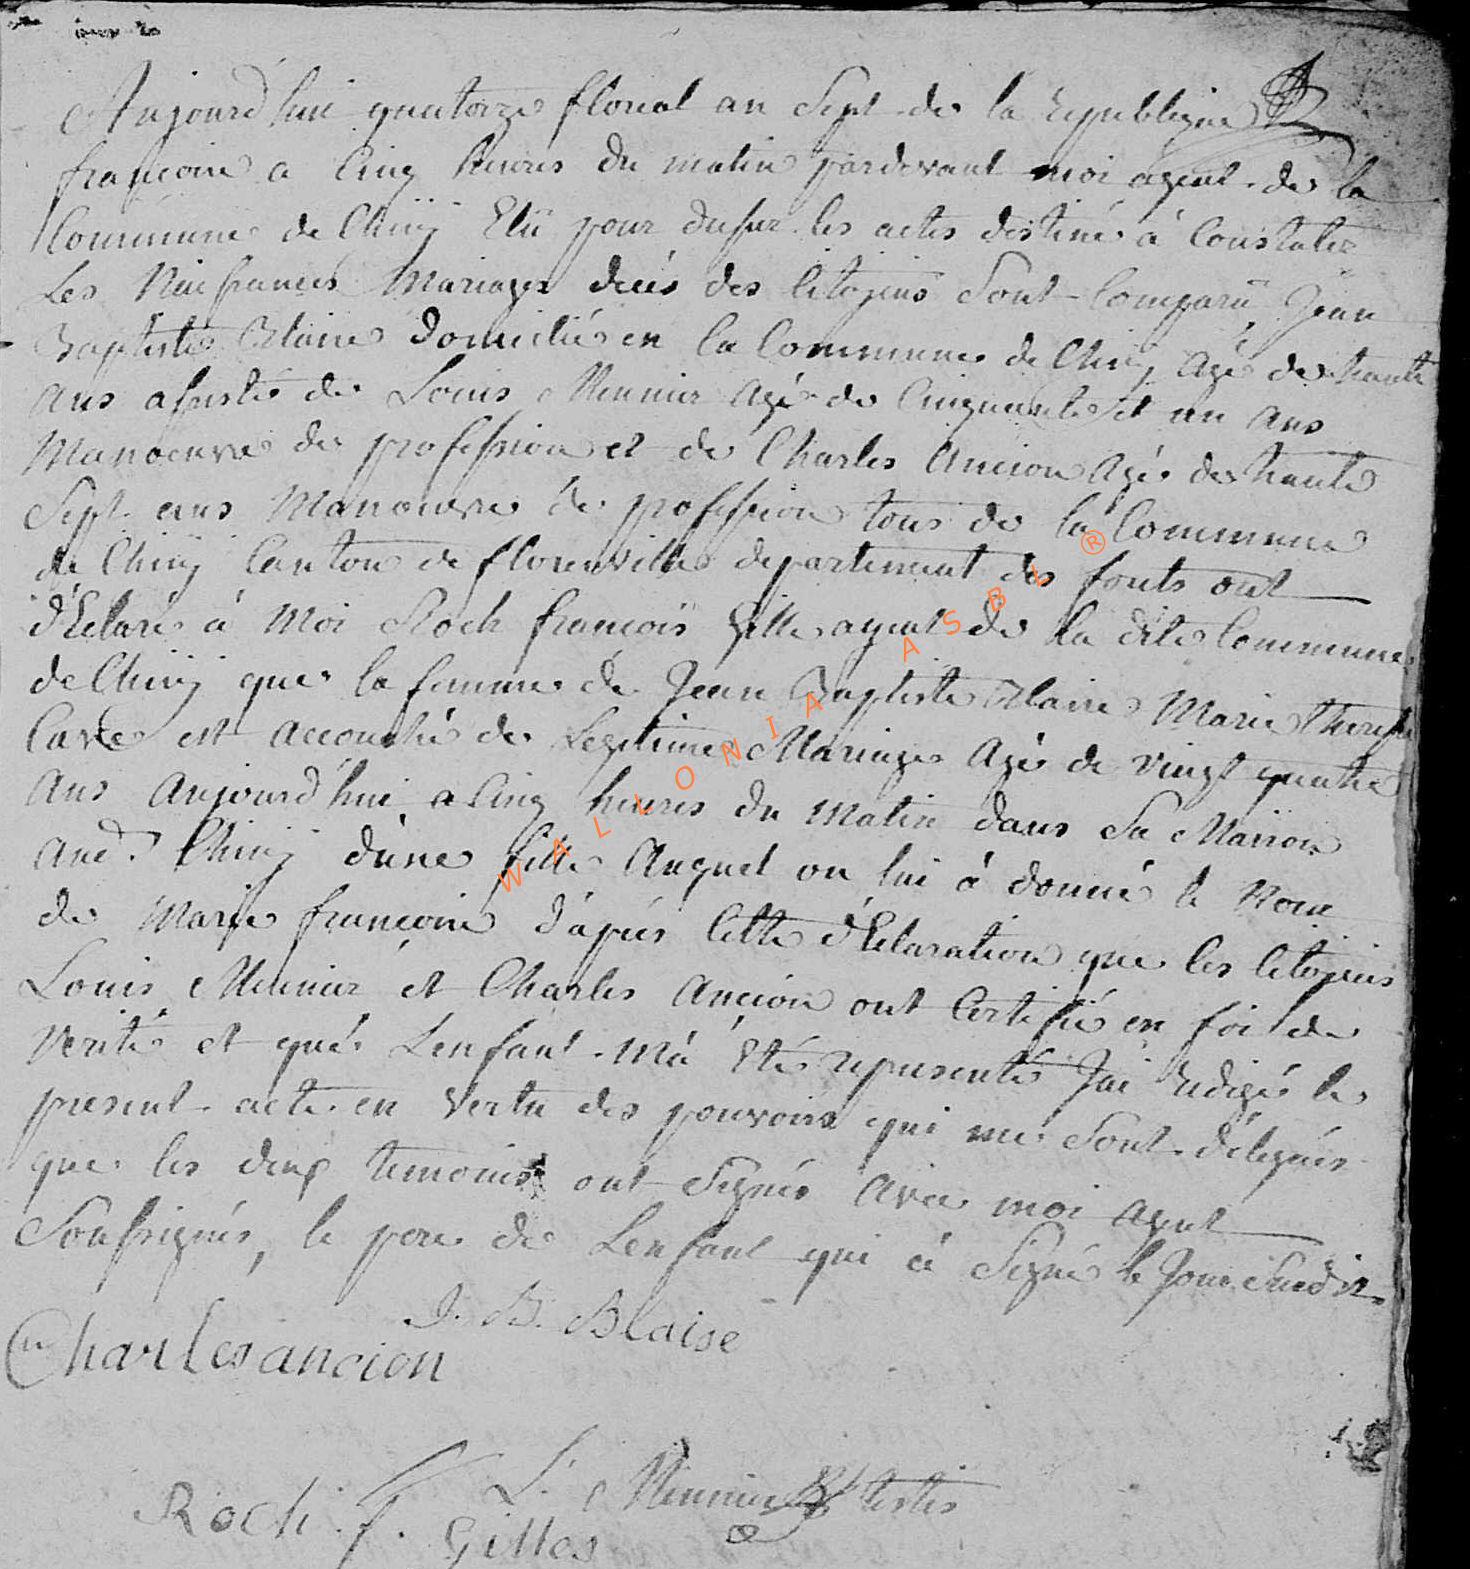 Aujourd'hui quatorze floreal an Sept de la republique
françoise a Cinq heures du matin pardevant moi agent de la
Commune de Chiny Elü pour les actes destiné à Constater
Les Naissances Mariages decés des Citoyens Sont Comparü Jean
Baptiste Blaise domicilié en la Commune de Chiny Agé de trente
Ans assisté de Louis Meunier Agé de Cinquante et un Ans
Manoeuvre de profession et de Charles Ancion Agé de trente
Sept ans Manoeuvre de profession tous de la Commune
de Chiny Canton de florenville departement des forets ont
d'Eclaré à Moi Roch françois Gilles agent de la dite Commune
de Chiny que la femme de Jean Baptiste Blaise Marie Therese
est accouché de Legitime Mariage Agé de vingt quatre
Ans Aujourd'hui a Cinq heures du Matin dans Sa Maison
Aud. Chiny d'une fille Auquel on lui à donné le Nom
de Marie françoise d'après Cette d'Eclaration que les Citoyens
Louis Meunier et Charles Ancion ont Certifié en foi de
Verité et que L'enfant m'à Eté representé J'ai redigé le
present acte en Vertu des pouvoirs qui me Sont délegués
que les deux temoins ont Signés Avec moi Agent
Soussignés, le pere de L'enfant qui à Signé le Jour Susdit
J. B. Blaise
Charles ancion
L. Meunier testis
Roch. f. Gilles
WALLONIA ASBL ®